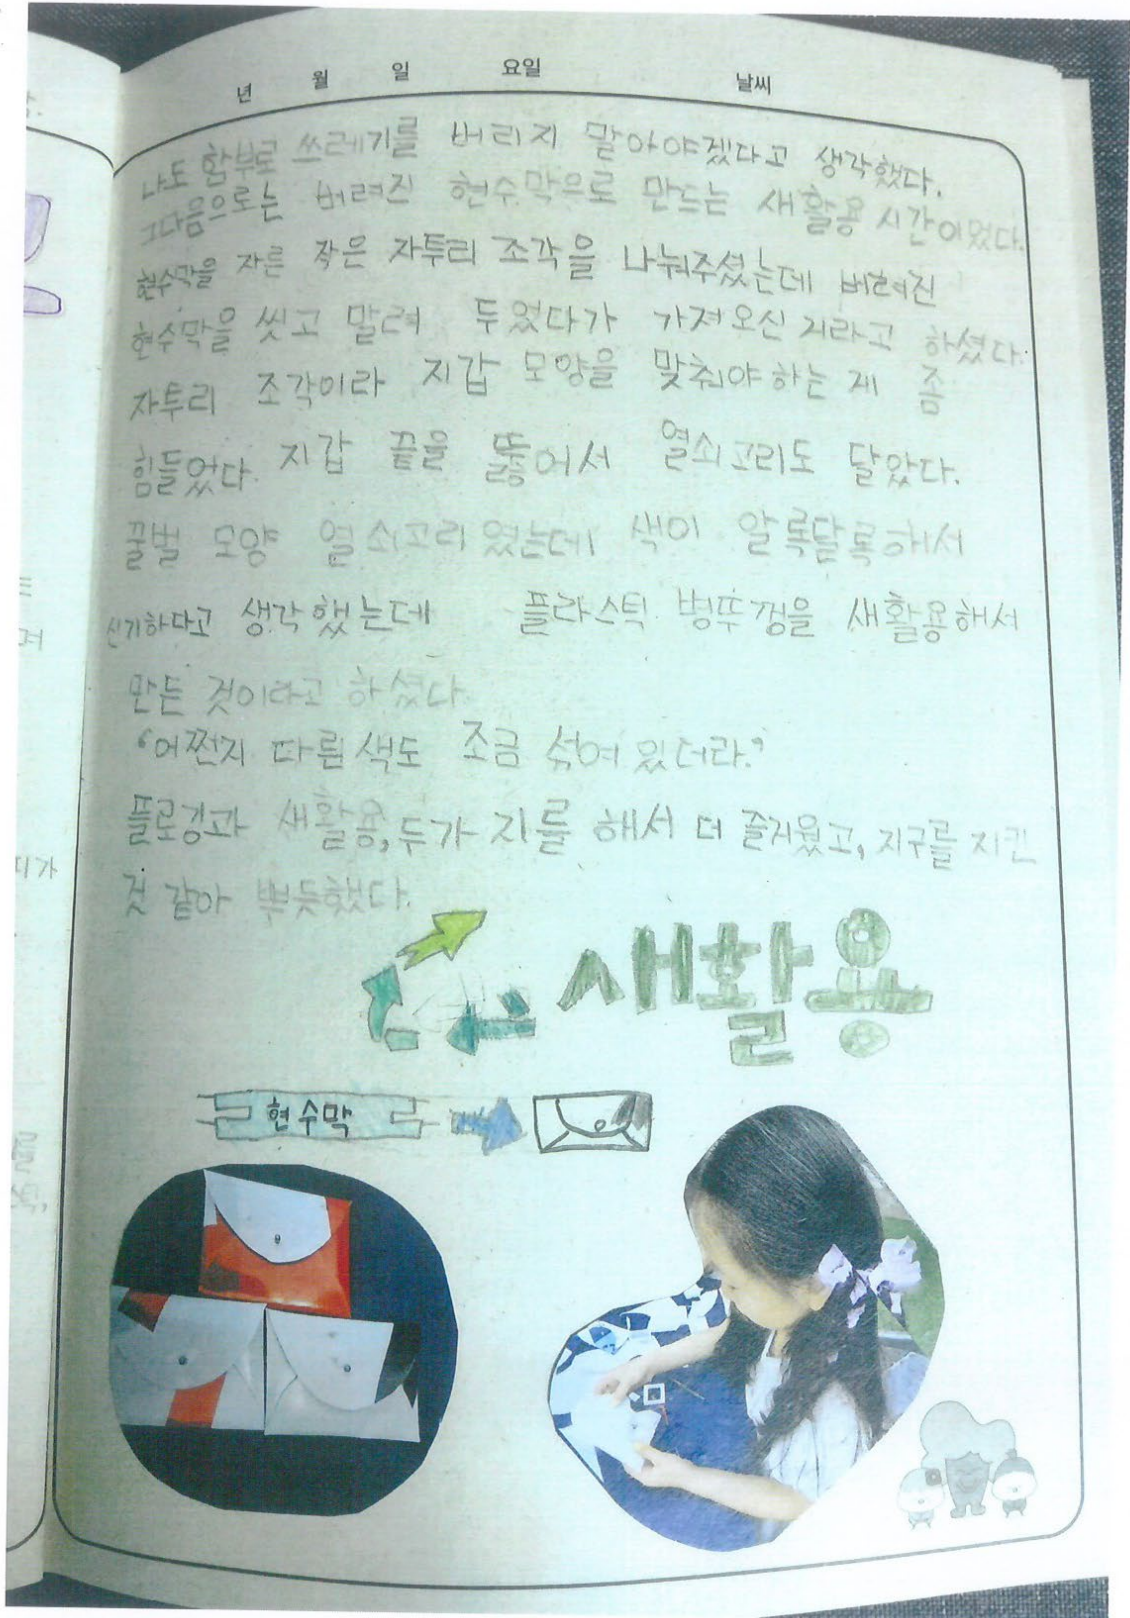 년 월 일 요일 날씨
나도 함부로 쓰레기를 버리지 말아야겠다고 생각했다.
그다음으로는 버려진 현수막으로 만드는 새활용 시간이었다.
현수막을 자른 작은 자투리 조각을 나눠주셨는데 버려진
현수막을 씻고 말려 두었다가 가져오신 거라고 하셨다.
자투리 조각이라 지갑 모양을 맞춰야하는 게 좀
힘들었다. 지갑 끝을 뚫어서 열쇠고리도 달았다.
꿀벌 모양 열쇠고리였는데 색이 알록달록해서
신기하다고 생각했는데 플라스틱 병뚜껑을 새활용해서
만든 것이라고 하셨다.
'어쩐지 다른색도 조금 섞여있더라.'
플로깅과 새활용, 두가지를 해서 더 즐거웠고, 지구를 지킨
것 같아 뿌듯했다.
새활용
현수막